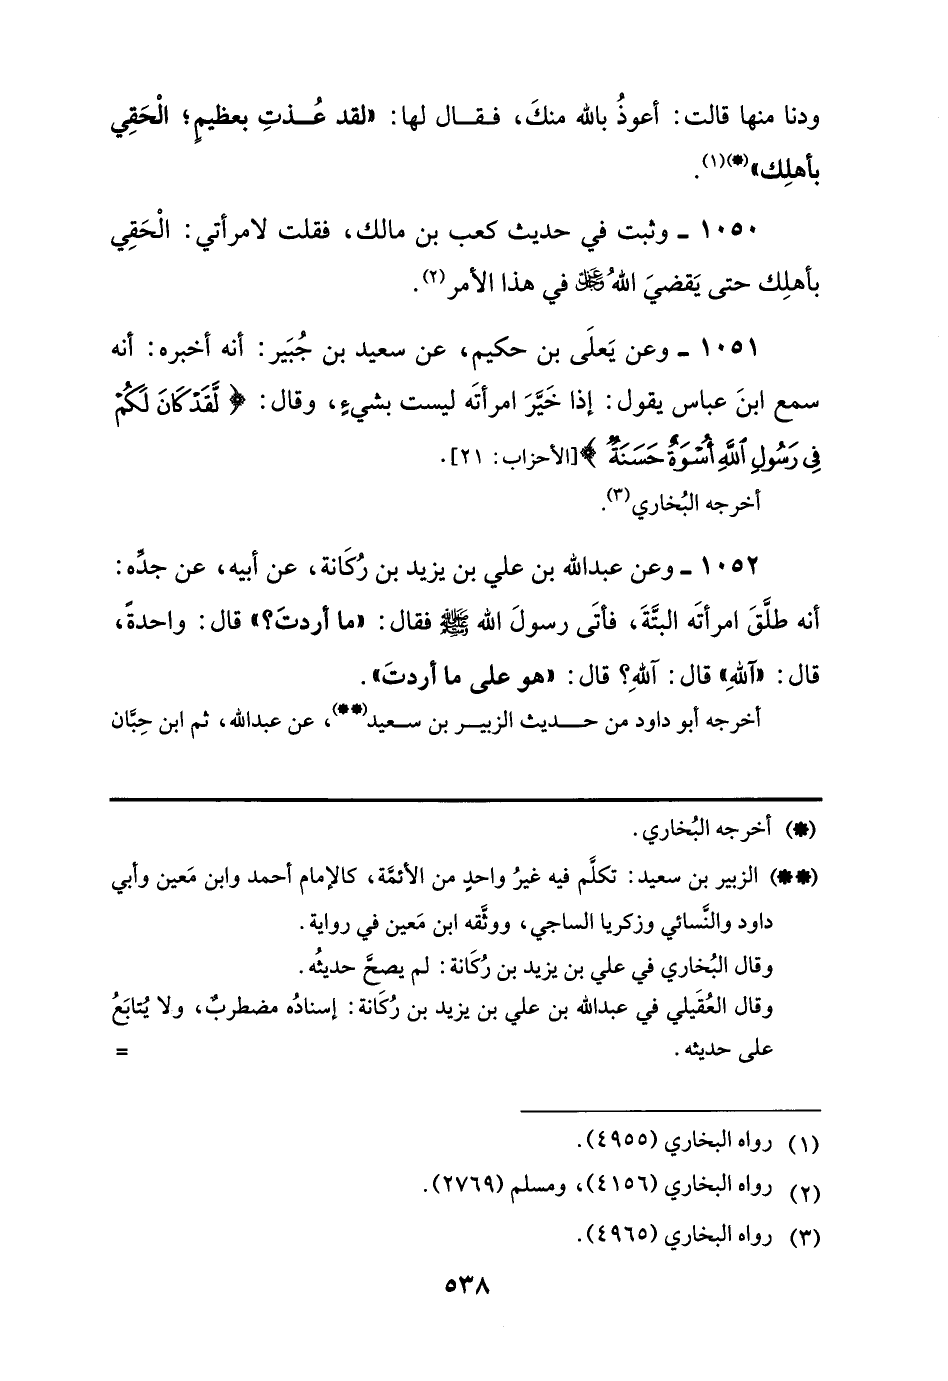 ودنا منها قالت: أعوذُ بالله منكَ، فقال لها: «لقد عُذتِ بعظيمٍ؛ الْحَقِي
بأهلِك»(*)(١).
١٠٥٠ ـ وثبت في حديث كعب بن مالك، فقلت لامرأتي: الْحَقِي
بأهلِك حتى يَقضيَ اللهُ ﷻ في هذا الأمر(٢).
١٠٥١ ـ وعن يَعلَى بن حكيم، عن سعيد بن جُبَير: أنه أخبره: أنه
سمع ابنَ عباس يقول: إذا خَيَّرَ امرأتَه ليست بشيءٍ، وقال: ﴿لَّقَدْ كَانَ لَكُمْ
فِي رَسُولِ ٱللَّهِ أُسْوَةٌ حَسَنَةٌ﴾[الأحزاب: ٢١].
أخرجه البُخاري(٣).
١٠٥٢ ـ وعن عبدالله بن علي بن يزيد بن رُكَانة، عن أبيه، عن جدِّه:
أنه طلَّقَ امرأتَه البتَّةَ، فأتَى رسولَ الله ﷺ فقال: «ما أردتَ؟» قال: واحدةً،
قال: «آللهِ» قال: آللهِ؟ قال: «هو على ما أردتَ».
أخرجه أبو داود من حديث الزبير بن سعيد(**)، عن عبدالله، ثم ابن حِبَّان
(*) أخرجه البُخاري.
(**) الزبير بن سعيد: تكلَّم فيه غيرُ واحدٍ من الأئمَّة، كالإمام أحمد وابن مَعين وأبي
داود والنَّسائي وزكريا الساجي، ووثَّقه ابن مَعين في رواية.
وقال البُخاري في علي بن يزيد بن رُكَانة: لم يصحَّ حديثُه.
وقال العُقَيلي في عبدالله بن علي بن يزيد بن رُكَانة: إسنادُه مضطربٌ، ولا يُتابَعُ
على حديثه. =
(١) رواه البخاري (٤٩٥٥).
(٢) رواه البخاري (٤١٥٦)، ومسلم (٢٧٦٩).
(٣) رواه البخاري (٤٩٦٥).
٥٣٨